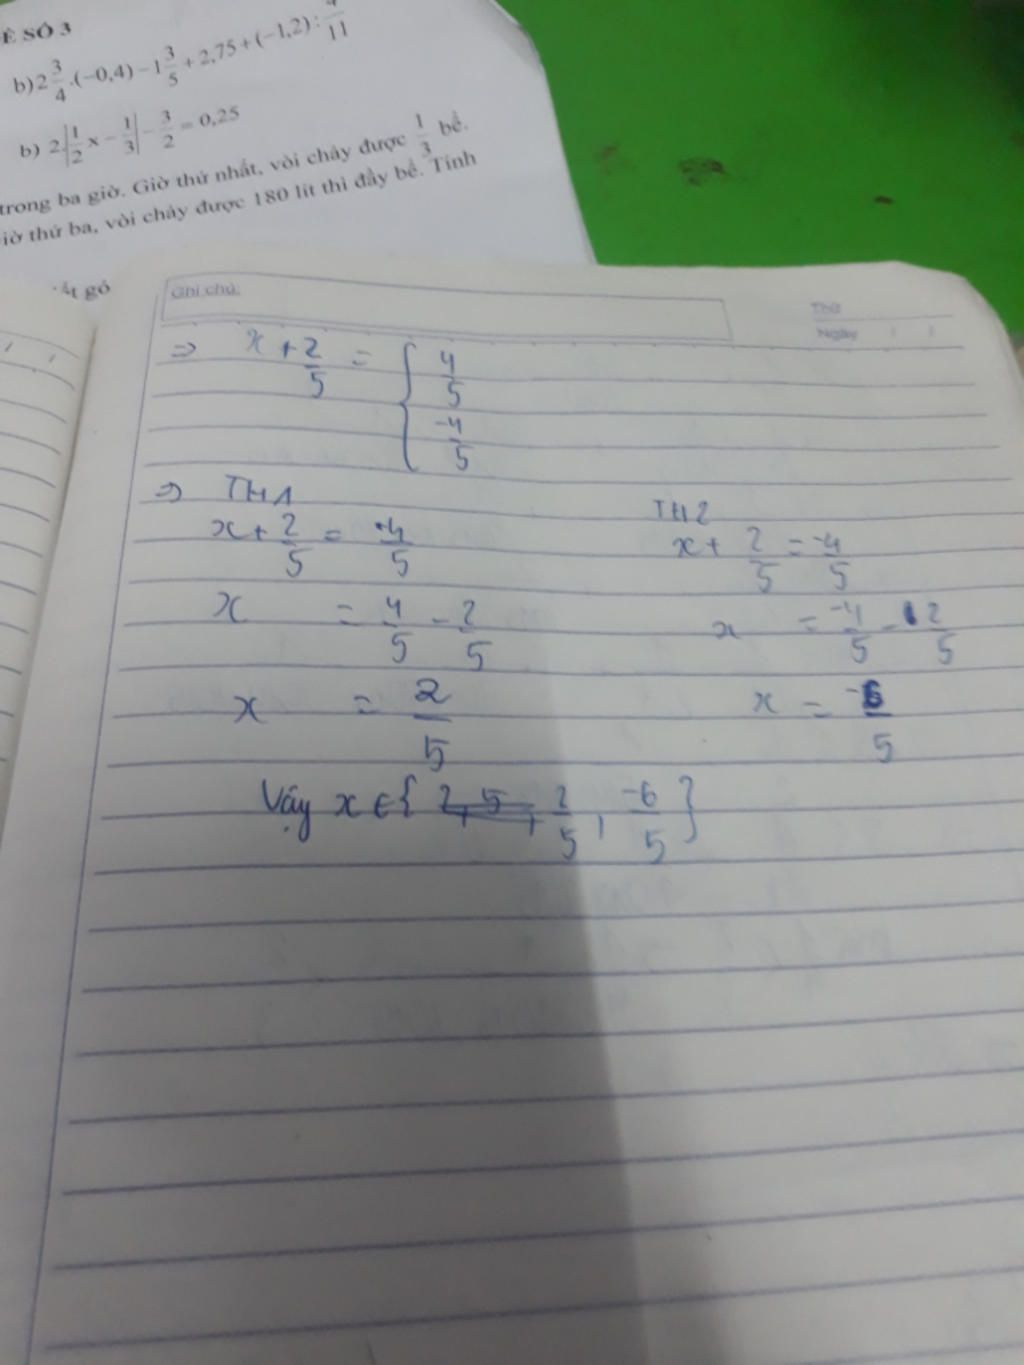 Ề SỐ 3
b) 2 3/4 .(−0,4) − 1 3/5 + 2,75 + (−1,2) : 4/11
b) 2.|1/2 x − 1/3| − 3/2 = 0,25
trong ba giờ. Giờ thứ nhất, vòi chảy được 1/3 bể.
iờ thứ ba, vòi chảy được 180 lít thì đầy bể. Tính
gó
Ghi chú:
Thứ
Ngày / /
=> x + 2/5 = { 4/5
-4/5
=> TH1
x + 2/5 = 4/5
x = 4/5 - 2/5
x = 2/5
TH2
x + 2/5 = -4/5
x = -4/5 - 2/5
x = -6/5
Vậy x ∈ { 2/5 , -6/5 }